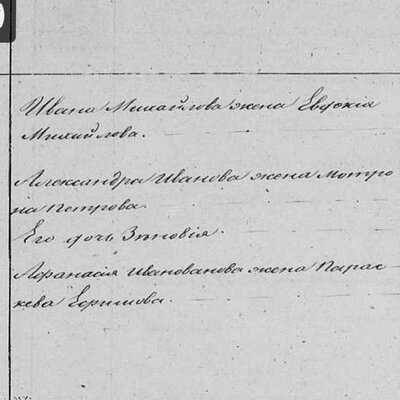 Ивана Михайлова жена Евдокія
Михайлова.
Александра Иванова жена Мотро
на Петрова.
Его дочь Зиновія.
Афанасія Ивановнова жена Парас
кева Ефимова.